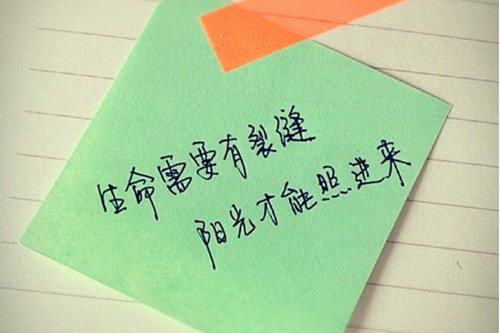 生命需要有裂缝
阳光才能照进来